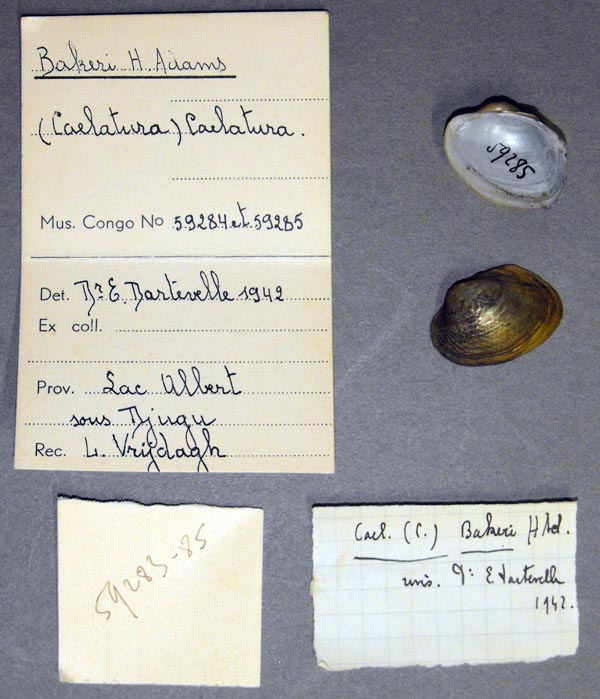 Bakeri H. Adams
(Caelatura) Caelatura.
Mus. Congo No 59284 et 59285
Det. Dr. E. Dartevelle 1942
Ex coll.
Prov. Lac Albert
sous Djugu
Rec. L. Vrijdagh
59285
59283-85
Cael. (C.) Bakeri H Ad.
Dr E Dartevelle
1942.